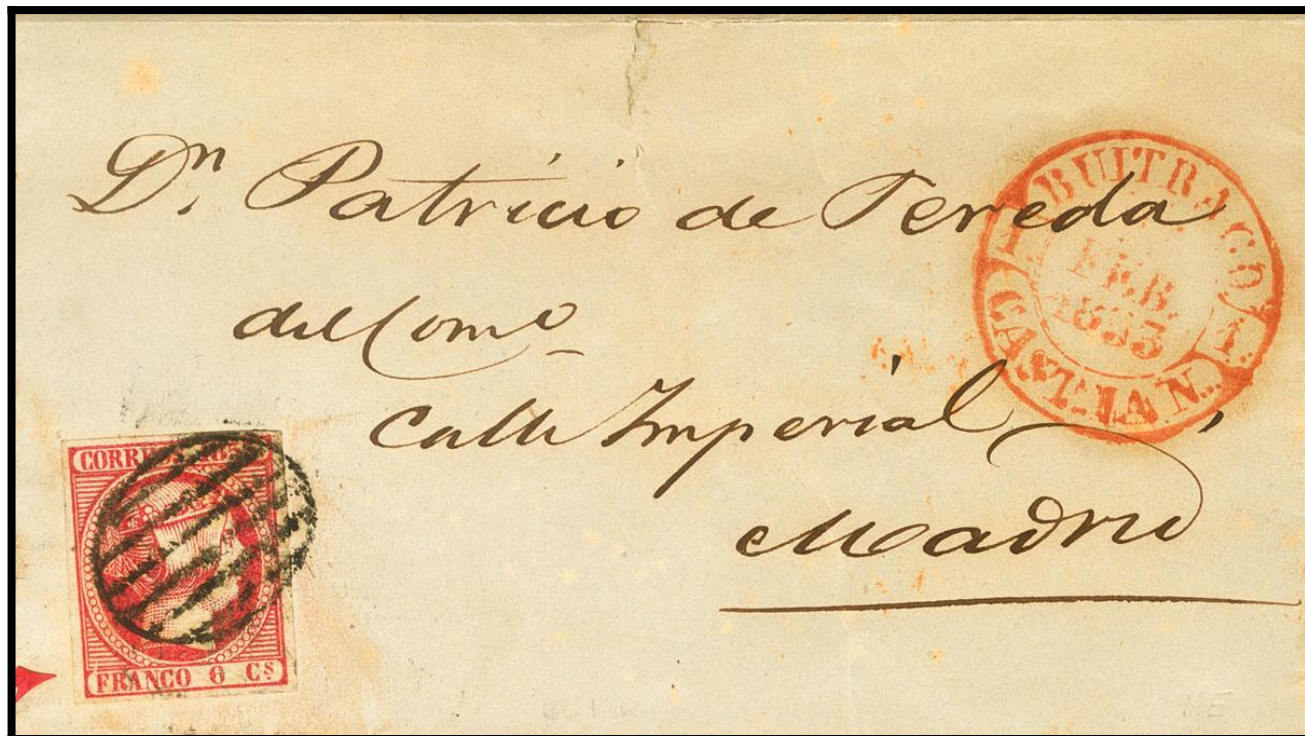 Dn. Patricio de Tereda
del Como
Calle Imperial,
Madrid
BUITRAGO
FEB.
1853
CAST. LA N.
CORREOS 185
FRANCO 6 Cs